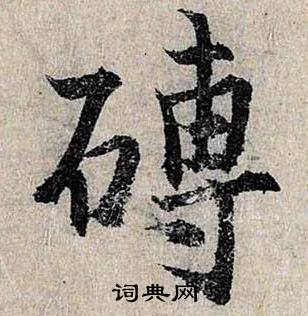 磚
词典网